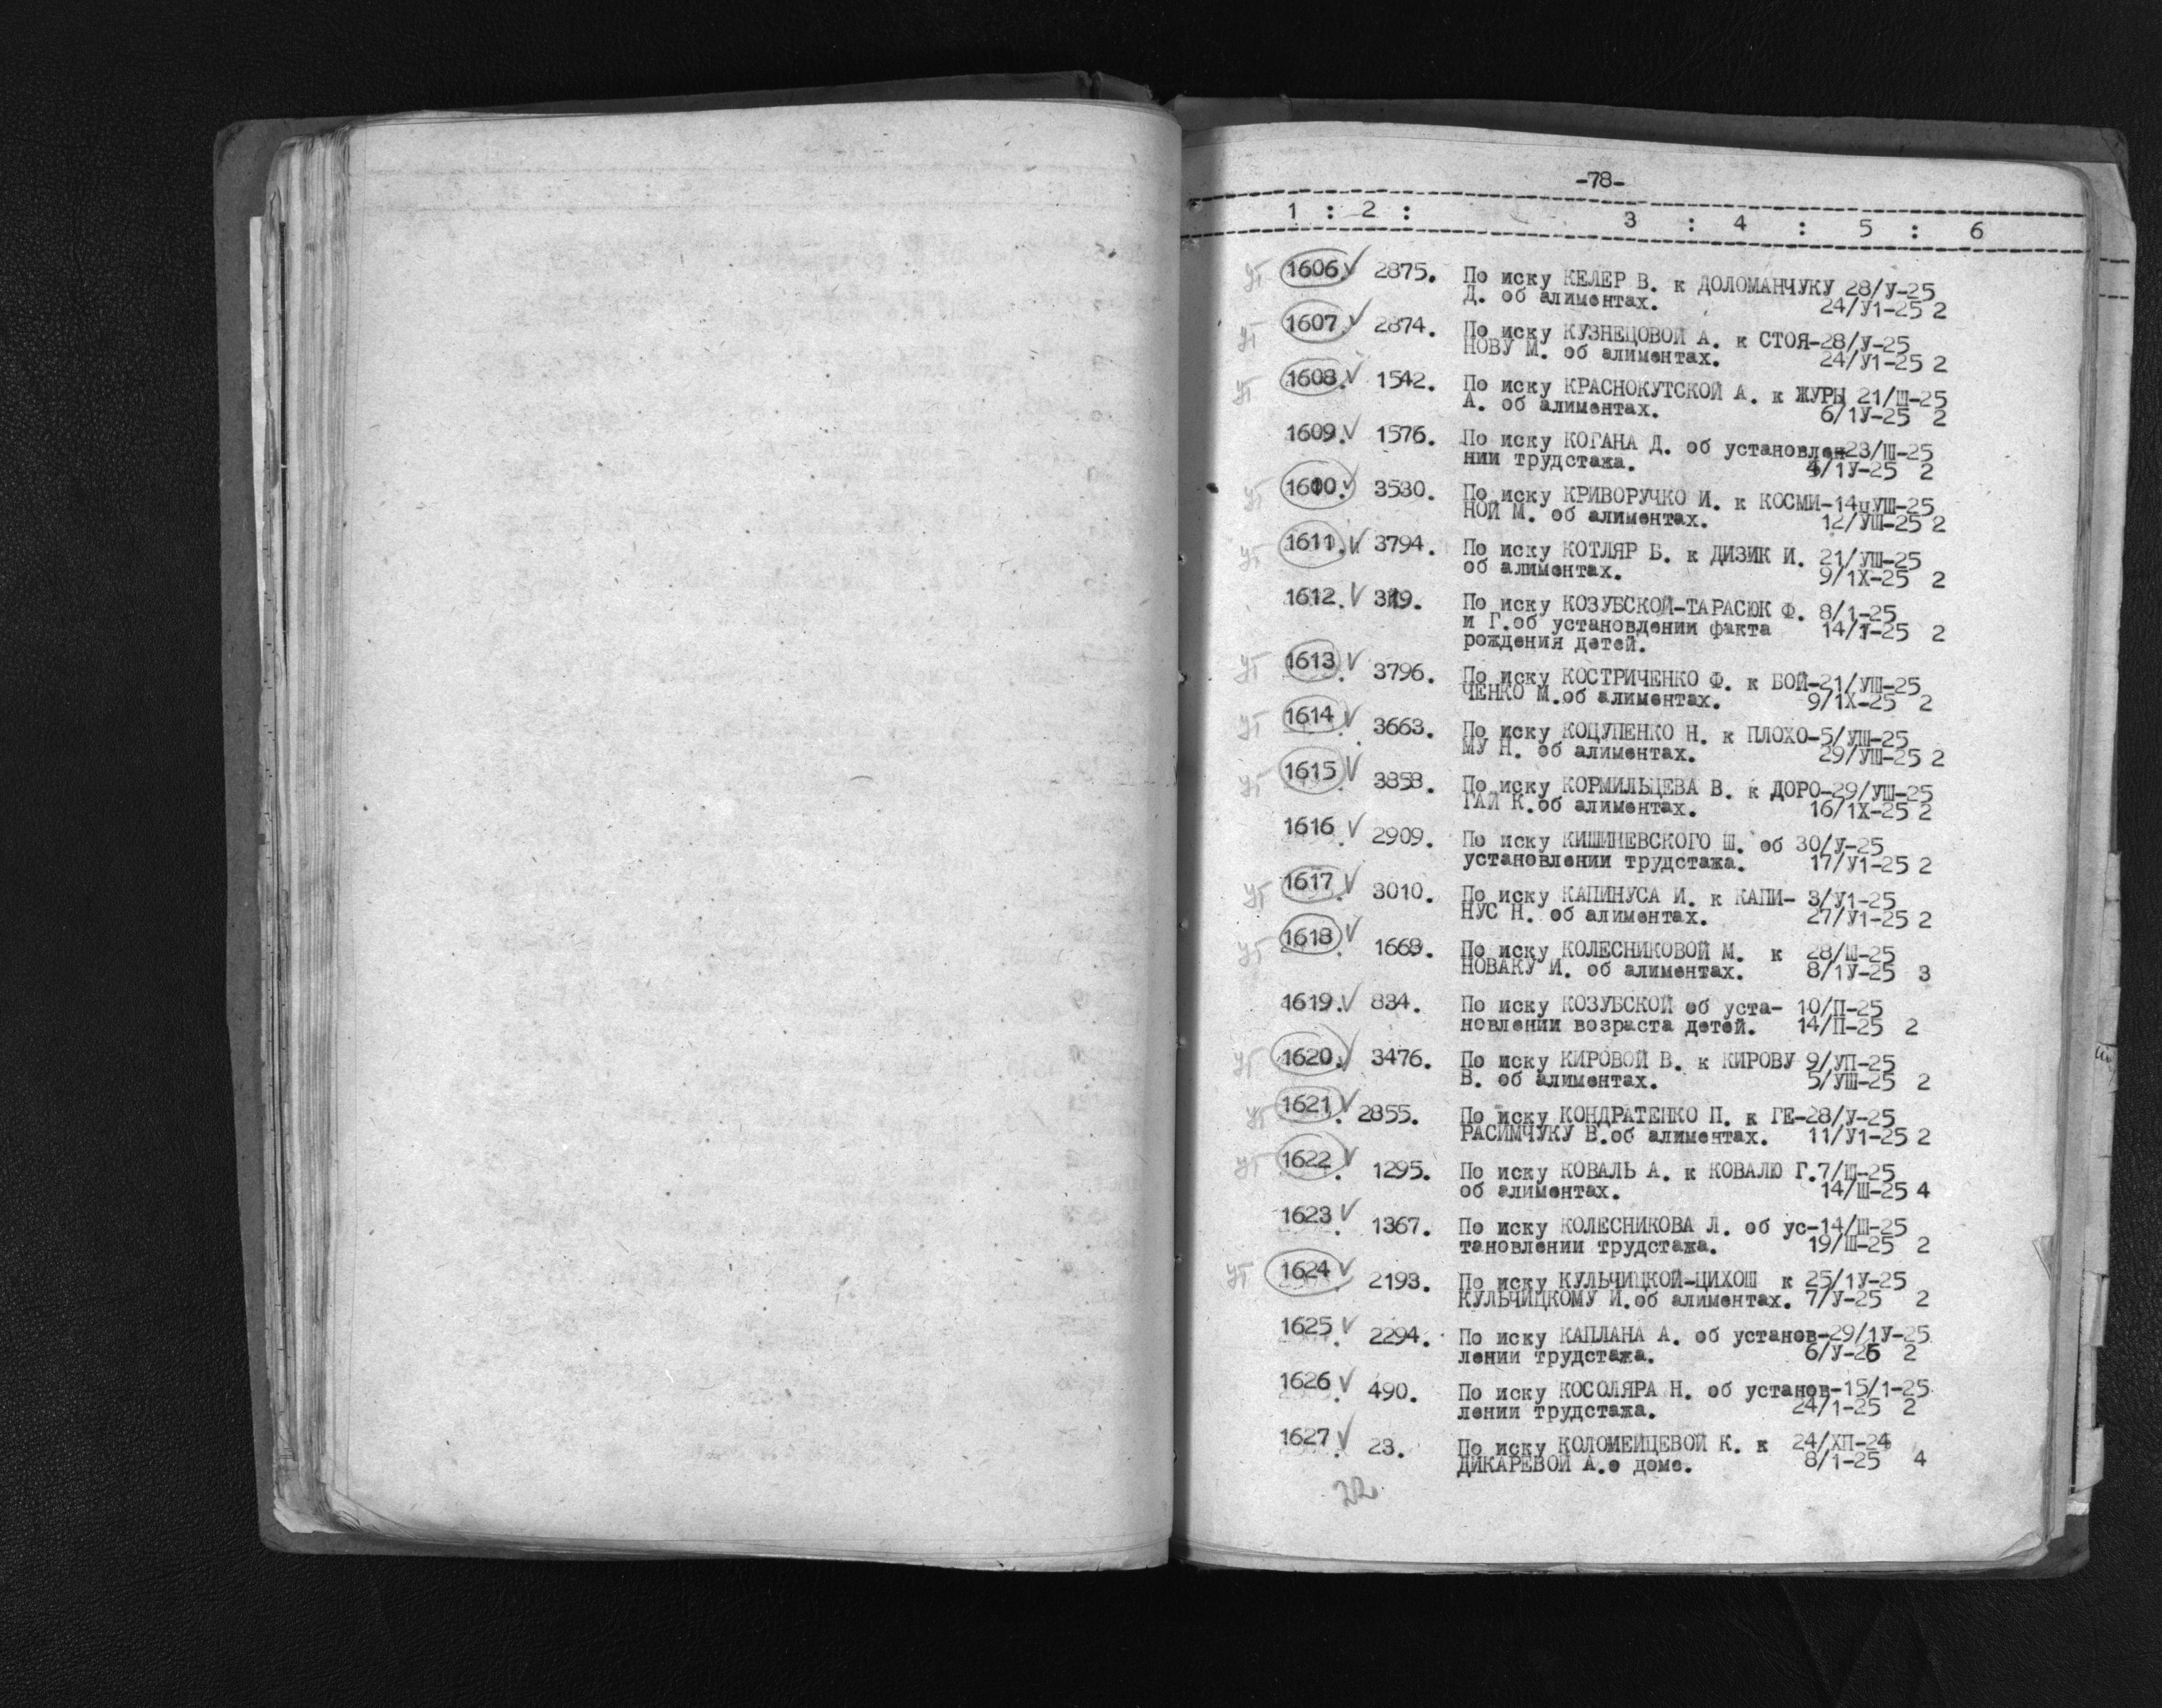 -78-
1 : 2 : 3 : 4 : 5 : 6
УТ 1606. V 2875. По иску КЕЛЕР В. к ДОЛОМАНЧУКУ 28/У-25
Д. об алиментах. 24/У1-25 2
УТ 1607. V 2874. По иску КУЗНЕЦОВОЙ А. к СТОЯ-28/У-25
НОВУ М. об алиментах. 24/У1-25 2
УТ 1608. V 1542. По иску КРАСНОКУТСКОЙ А. к ЖУРЫ 21/Ш-25
А. об алиментах. 6/1У-25 2
1609. V 1576. По иску КОГАНА Д. об установлен23/Ш-25
нии трудстажа. 4/1У-25 2
УТ 1610. V 3530. По иску КРИВОРУЧКО И. к КОСМИ-14цУШ-25
НОЙ М. об алиментах. 12/УШ-25 2
УТ 1611. V 3794. По иску КОТЛЯР Б. к ДИЗИК И. 21/УШ-25
об алиментах. 9/1Х-25 2
1612. V 319. По иску КОЗУБСКОЙ-ТАРАСЮК Ф. 8/1-25
и Г.об установдении факта 14/1-25 2
рождения детей.
УТ 1613. V 3796. По иску КОСТРИЧЕНКО Ф. к БОЙ-21/УШ-25
ЧЕНКО М.об алиментах. 9/1Х-25 2
УТ 1614. V 3663. По иску КОЦУПЕНКО Н. к ПЛОХО-5/УШ-25
МУ Н. об алиментах. 29/УШ-25 2
УТ 1615. V 3858. По иску КОРМИЛЬЦЕВА В. к ДОРО-29/УШ-25
ГАЙ К.об алиментах. 16/1Х-25 2
1616. V 2909. По иску КИШИНЕВСКОГО Ш. об 30/У-25
установлении трудстажа. 17/У1-25 2
УТ 1617. V 3010. По иску КАПИНУСА И. к КАПИ- 3/У1-25
НУС Н. об алиментах. 27/У1-25 2
УТ 1618. V 1669. По иску КОЛЕСНИКОВОЙ М. к 28/Ш-25
НОВАКУ И. об алиментах. 8/1У-25 3
1619. V 834. По иску КОЗУБСКОЙ об уста- 10/П-25
новлении возраста детей. 14/П-25 2
УТ 1620. V 3476. По иску КИРОВОЙ В. к КИРОВУ 9/УП-25
В. об алиментах. 5/УШ-25 2
УТ 1621. V 2855. По иску КОНДРАТЕНКО П. к ГЕ-28/У-25
РАСИМЧУКУ В.об алиментах. 11/У1-25 2
УТ 1622. V 1295. По иску КОВАЛЬ А. к КОВАЛЮ Г.7/Ш-25
об алиментах. 14/Ш-25 4
1623. V 1367. По иску КОЛЕСНИКОВА Л. об ус-14/Ш-25
тановлении трудстажа. 19/Ш-25 2
УТ 1624. V 2193. По иску КУЛЬЧИЦКОЙ-ЦИХОШ к 25/1У-25
КУЛЬЧИЦКОМУ И.об алиментах. 7/У-25 2
1625. V 2294. По иску КАПЛАНА А. об установ-29/1У-25
лении трудстажа. 6/У-25 2
1626. V 490. По иску КОСОЛЯРА Н. об установ-15/1-25
лении трудстажа. 24/1-25 2
1627. V 23. По иску КОЛОМЕЙЦЕВОЙ К. к 24/ХП-24
ДИКАРЕВОЙ А.о доме. 8/1-25 4
22